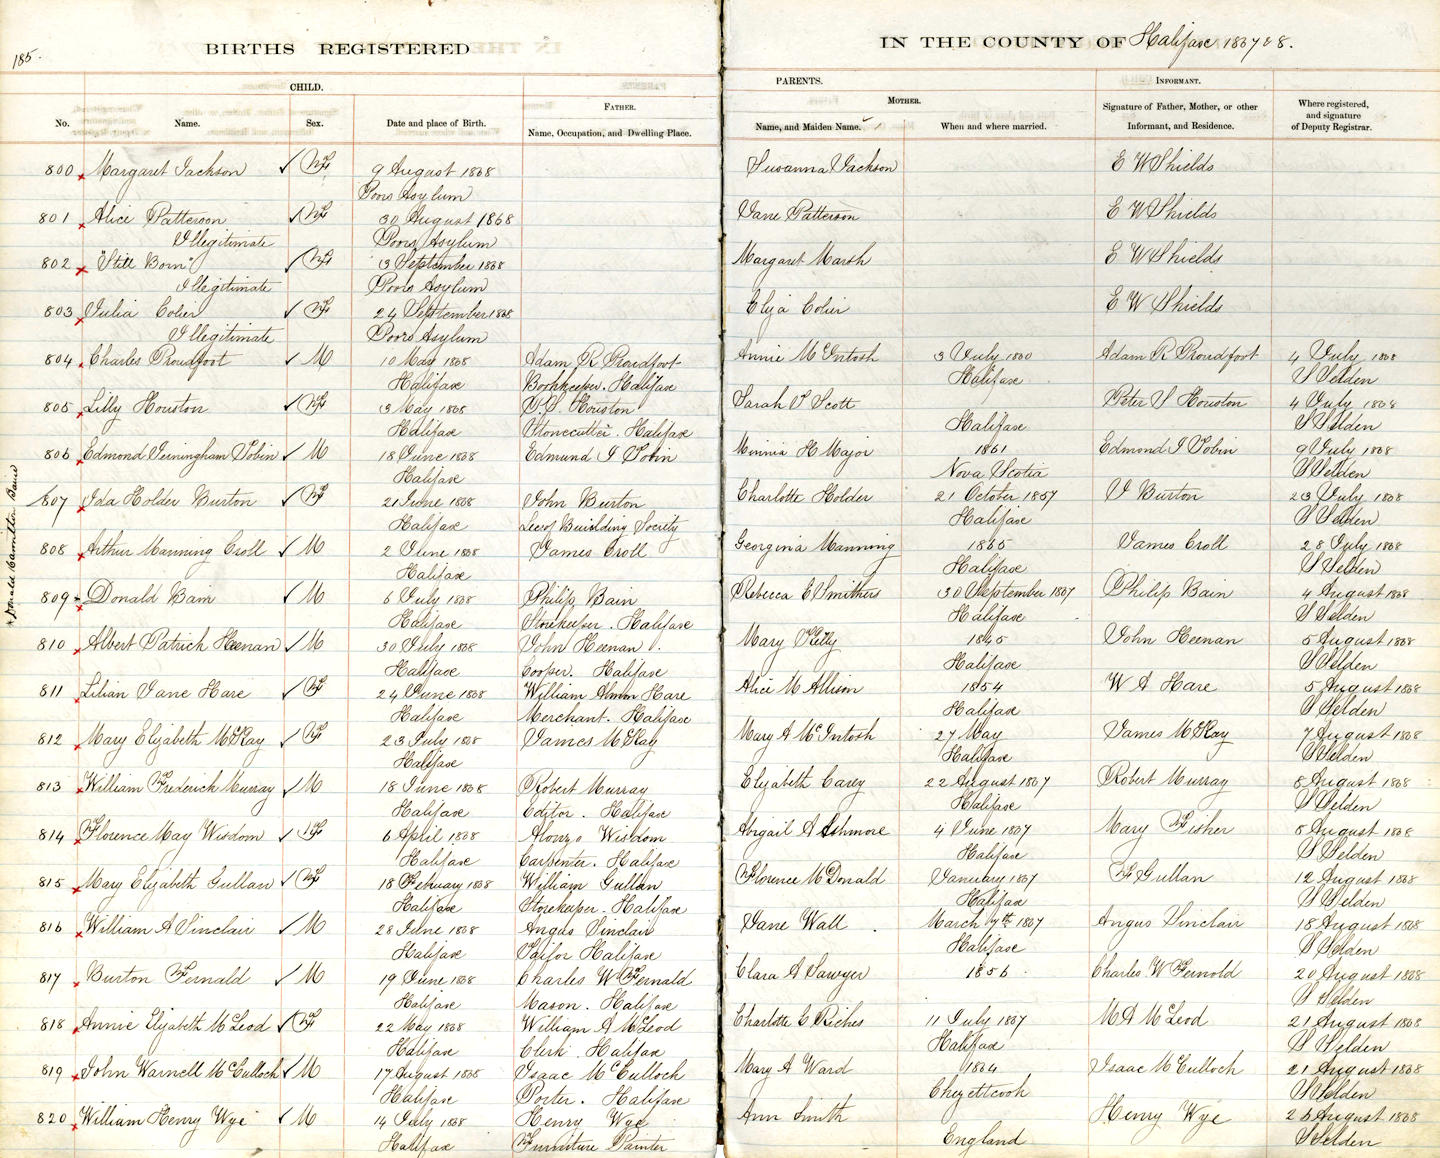 185.
BIRTHS REGISTERED IN THE COUNTY OF Halifax 1867 & 8.
CHILD. PARENTS. INFORMANT.
FATHER. MOTHER.
No. Name. Sex. Date and place of Birth. Name, Occupation, and Dwelling Place. Name, and Maiden Name. When and where married. Signature of Father, Mother, or other Informant, and Residence. Where registered, and signature of Deputy Registrar.
800 Margaret Jackson F 9 August 1868 Susanna Jackson E W Shields
Poors Asylum
801 Alice Patterson F 30 August 1868 Jane Patterson E W Shields
Illegitimate Poors Asylum
802 "Still Born" F 13 September 1868 Margaret Marsh E W Shields
Illegitimate Poors Asylum
803 Julia Colier F 24 September 1868 Eliza Colier E W Shields
Illegitimate Poors Asylum
804 Charles Proudfoot M 10 May 1868 Adam R Proudfoot Annie McIntosh 3 July 1860 Adam R Proudfoot 4 July 1868
Halifax Bookkeeper. Halifax Halifax S Selden
805 Lilly Houston F 3 May 1868 P. S. Houston Sarah S Scott Peter S Houston 4 July 1868
Halifax Stonecutter. Halifax Halifax S Selden
806 Edmond Tobin M 18 June 1868 Edmund J Tobin Minnia H Major 1861 Edmond J Tobin 9 July 1868
Halifax Nova Scotia S Selden
807 Ida Holder Burton F 21 June 1868 John Burton Charlotte Holder 21 October 1857 J Burton 23 July 1868
Halifax Secy Building Society Halifax S Selden
808 Arthur Manning Croll M 2 June 1868 James Croll Georgina Manning 1865 James Croll 28 July 1868
Halifax Halifax S Selden
809 × Donald Bain M 6 July 1868 Philip Bain Rebecca E Smithers 30 September 1867 Philip Bain 4 August 1868
Halifax Storekeeper. Halifax Halifax S Selden
× Donald Hamilton Bain
810 Albert Patrick Heenan M 30 July 1868 John Heenan. Mary Kelly 1865 John Heenan 5 August 1868
Halifax Cooper. Halifax Halifax S Selden
811 Lilian Jane Hare F 24 June 1868 William Almon Hare Alice M Allison 1854 W A Hare 5 August 1868
Halifax Merchant. Halifax Halifax S Selden
812 Mary Elizabeth McKay F 23 July 1868 James McKay Mary A McIntosh 27 May James McKay 7 August 1868
Halifax Halifax S Selden
813 William Frederick Murray M 18 June 1868 Robert Murray Elizabeth Carey 22 August 1867 Robert Murray 8 August 1868
Halifax Editor. Halifax Halifax S Selden
814 Florence May Wisdom F 6 April 1868 Alonzo Wisdom Abigail A Ashmore 4 June 1867 Mary Fisher 8 August 1868
Halifax Carpenter. Halifax Halifax S Selden
815 Mary Elizabeth Gullan F 18 February 1868 William Gullan Florence McDonald January 1867 F Gullan 12 August 1868
Halifax Storekeeper. Halifax Halifax S Selden
816 William A Sinclair M 28 June 1868 Angus Sinclair Jane Wall March 7th 1867 Angus Sinclair 18 August 1868
Halifax Tailor Halifax Halifax S Selden
817 Burton Fernald M 19 June 1868 Charles W Fernald Clara A Sawyer 1856 Charles W Fernold 20 August 1868
Halifax Mason. Halifax S Selden
818 Annie Elizabeth McLeod F 22 May 1868 William A McLeod Charlotte C Riches 11 July 1867 M A McLeod 21 August 1868
Halifax Clerk. Halifax Halifax S Selden
819 John Warnell McCulloch M 17 August 1868 Isaac McCulloch Mary A Ward 1864 Isaac McCulloch 21 August 1868
Halifax Porter. Halifax Chezettcook S Selden
820 William Henry Wye M 14 July 1868 Henry Wye Ann Smith Henry Wye 26 August 1868
Halifax Furniture Painter England S Selden